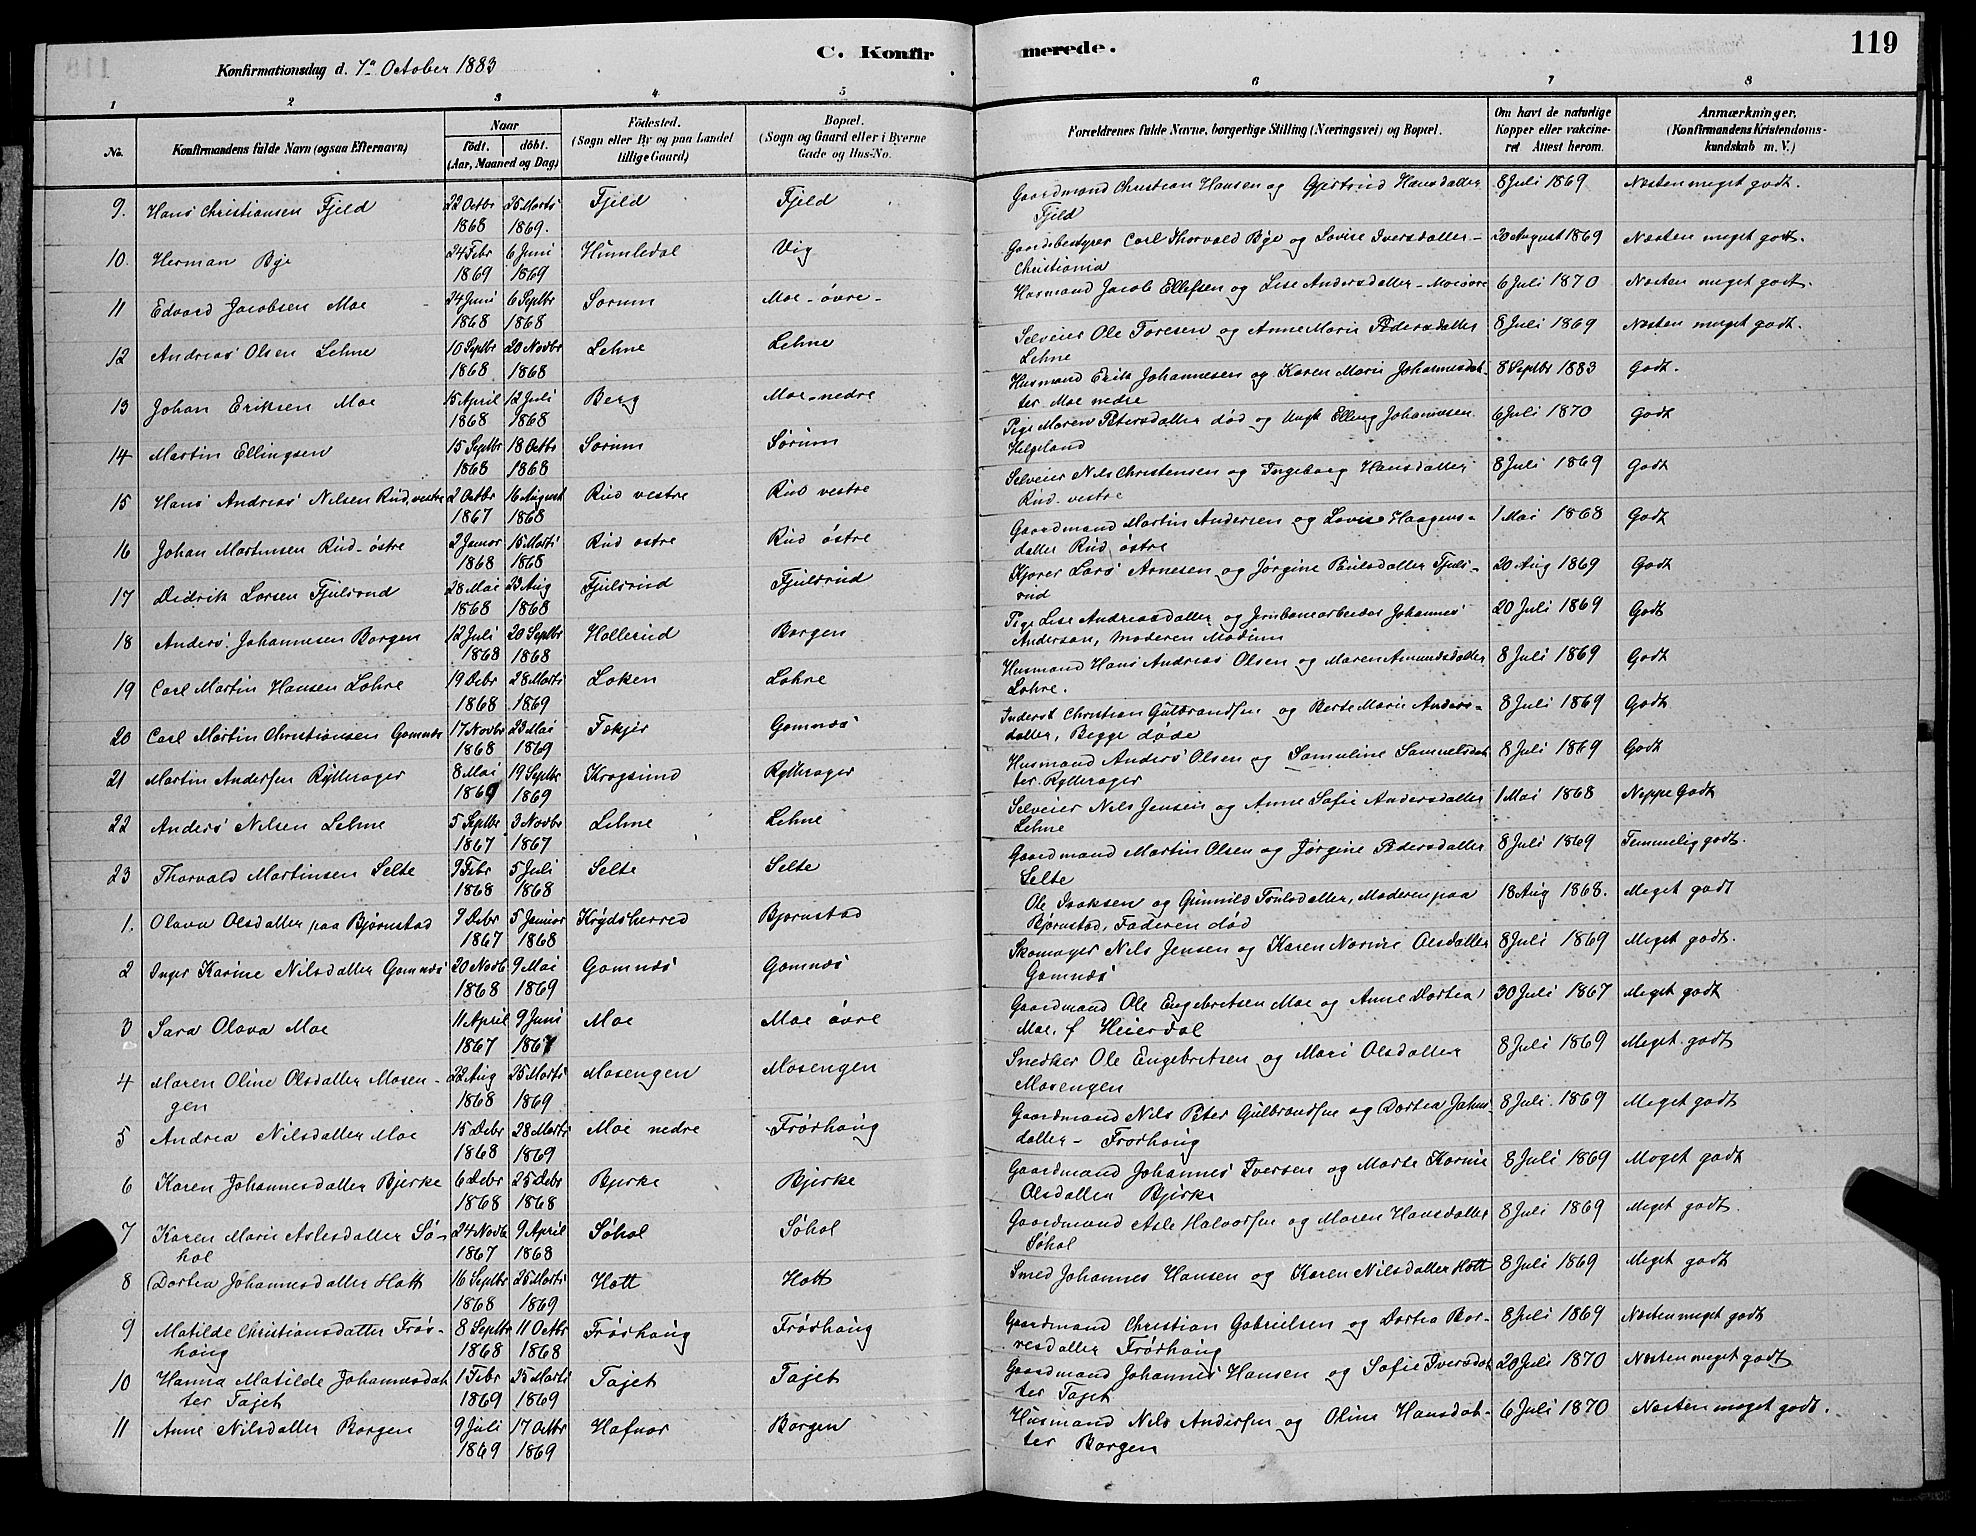 C. Konfirmerede. 119
Konfirmationsdag d. 7de October 1883
1 2 3 4 5 6 7 8
No. Konfirmandens fulde Navn (ogsaa Efternavn) Naar født. døbt. (Aar, Maaned og Dag) Fødested. (Sogn eller By og paa Landet tillige Gaard) Bopæl. (Sogn og Gaard eller i Byerne Gade og Hus-No. Forældrenes fulde Navne, borgerlige Stilling (Næringsvei) og Bopæl. Om havt de naturlige Kopper eller vakcineret Attest herom. Anmærkninger. (Konfirmandens Kristendomskundskab m. V.)
9. Hans Christiansen Fjeld 22 Octbr 1868 25 Marts 1869. Fjeld Fjeld Gaardmand Christian Hansen og Gjertrud Hansdatter Fjeld 8 Juli 1869 Næsten meget godt.
10. Herman Bye 24 Febr 1869 6 Juni 1869 Humledal Vig Gaardsbestyrer Carl Thorvald Bye og Lovise Iversdatter - Christiania 20 August 1869 Næsten meget godt.
11 Edvard Jacobsen Moe 24 Juni 1868 6 Septbr 1868 Sørum Moe - øvre - Husmand Jacob Ellefsen og Lise Andersdatter - Moe øvre 6 Juli 1870 Næsten meget godt.
12 Andreas Olsen Lehne 10 Septbr 1868 20 Novbr 1868 Lehne Lehne Selveier Ole Toresen og Anne Marie Pedersdatter Lehne 8 Juli 1869 Næsten meget godt.
13 Johan Eriksen Moe 15 April 1868 12 Juli 1868 Berg Moe - nedre Husmand Erik Johannesen og Karen Marie Johannesdatter Moe nedre 8 Septbr 1883 Godt.
14 Martin Ellingsen 15 Septbr 1868 18 Octbr 1868 Sørum Sørum Pige Maren Petersdatter død og Ungk Elling Johannesen Helgeland 6 Juli 1870 Godt
15 Hans Andreas Nilsen Rud, vestre 2 Octbr 1867 16 August 1868 Rud vestre Rud vestre Selveier Nils Christensen og Ingeborg Hansdatter Rud - vestre 8 Juli 1869 Godt
16 Johan Martinsen Rud - østre 2 Januar 1868 15 Marts 1868 Rud østre Rud østre Gaardmand Martin Andersen og Lovise Haagensdatter Rud østre 1 Mai 1868 Godt
17 Didrik Larsen Fjulsrud 28 Mai 1868 23 Aug 1868 Fjulsrud Fjulsrud Kjører Lars Arnesen og Jørgine Paulsdatter Fjulsrud 20 Aug 1869 Godt
18 Anders Johannesen Borgen 12 Juli 1868 20 Septbr 1868 Hollerud Borgen Pige Lise Andreasdatter og Jernbanearbeider Johannes Anderson, Moderen Modum 20 Juli 1869 Godt
19 Carl Martin Hansen Lohre 19 Debr 1868 28 Marts 1869 Loken Lohre Husmand Hans Andreas Olsen og Maren Amundsdatter Lohre. 8 Juli 1869 Godt
20 Carl Martin Christiansen Gomnæs 17 Novbr 1868 23 Mai 1869 Fækjer Gomnæs Inderst Christian Gulbrandsen og Berte Marie Andersdatter, Begge døde 8 Juli 1869 Godt
21 Martin Andersen Rytterager 8 Mai 1869 19 Septbr 1869 Krogsund Rytterager Husmand Anders Olsen og Samuline Samuelsdatter Rytterager 8 Juli 1869 Godt
22 Anders Nilsen Lehne 5 Septbr 1867 3 Novbr 1867 Lehne Lehne Selveier Nils Jensen og Anne Sofie Andersdatter Lehne 1 Mai 1868 Neppe Godt
23 Thorvald Martinsen Selte 9 Febr 1868 5 Juli 1868 Selte Selte Gaardmand Martin Olsen og Jørgine Pedersdatter Selte 8 Juli 1869 Temmelig godt.
1. Olava Olsdatter paa Bjørnstad 9 Debr 1867 5 Januar 1868 Krydsherred Bjørnstad Ole Isaksen og Gunnild Toulsdatter, Moderen paa Bjørnstad, Faderen død 18 Aug 1868. Meget godt
2 Inger Karine Nilsdatter Gomnæs 20 Novb 1868 9 Mai 1869 Gomnæs Gomnæs Skomager Nils Jensen og Karen Marine Olsdatter Gomnæs 8 Juli 1869 Meget godt.
3 Sara Olava Moe 11 April 1867 9 Juni 1867 Moe Moe øvre Gaardmand Ole Engebretsen Moe og Anne Dortea Moe, f Heierdal 30 Juli 1867 Meget godt
4 Maren Oline Olsdatter Mosengen 22 Aug 1868 25 Marts 1869 Mosengen Mosengen Snedker Ole Engebretsen og Mari Olsdatter Mosengen 8 Juli 1869 Meget godt
5 Andrea Nilsdatter Moe 15 Debr 1868 28 Marts 1869 Moe nedre Frøshaug Gaardmand Nils Peter Gulbrandsen og Dortea Jahnsdatter - Frøshaug 8 Juli 1869 Meget godt
6 Karen Johannesdatter Bjerke 6 Debr 1868 25 Debr 1868 Bjerke Bjerke Gaardmand Johannes Iversen og Marte Karine Olsdatter Bjerke 8 Juli 1869 Meget godt
7 Karen Marie Aslesdatter Søhol 24 Novb 1867 9 April 1868 Søhol Søhol Gaardmand Asle Halvorsen og Maren Hansdatter Søhol 8 Juli 1869 Meget godt.
8 Dortea Johannesdatter Hott 16 Septbr 1868 25 Marts 1869 Hott Hott Smed Johannes Hansen og Karen Nilsdatter Hott 8 Juli 1869 Meget godt
9 Matilde Christiansdatter Frøshaug 8 Septbr 1868 11 Octbr 1868 Frøshaug Frøshaug Gaardmand Christian Gabrielsen og Dortea Borresdatter Frøshaug 8 Juli 1869 Næsten meget godt
10 Hanna Matilde Johannesdatter Tajet 1 Febr 1869 25 Marts 1869 Tajet Tajet Gaardmand Johannes Hansen og Sofie Iversdatter Tajet 20 Juli 1870 Næsten meget godt
11 Anne Nilsdatter Borgen 9 Juli 1869 17 Octbr 1869 Hafnor Borgen Husmand Nils Andersen og Oline Hansdatter Borgen 6 Juli 1870 Næsten meget godt.